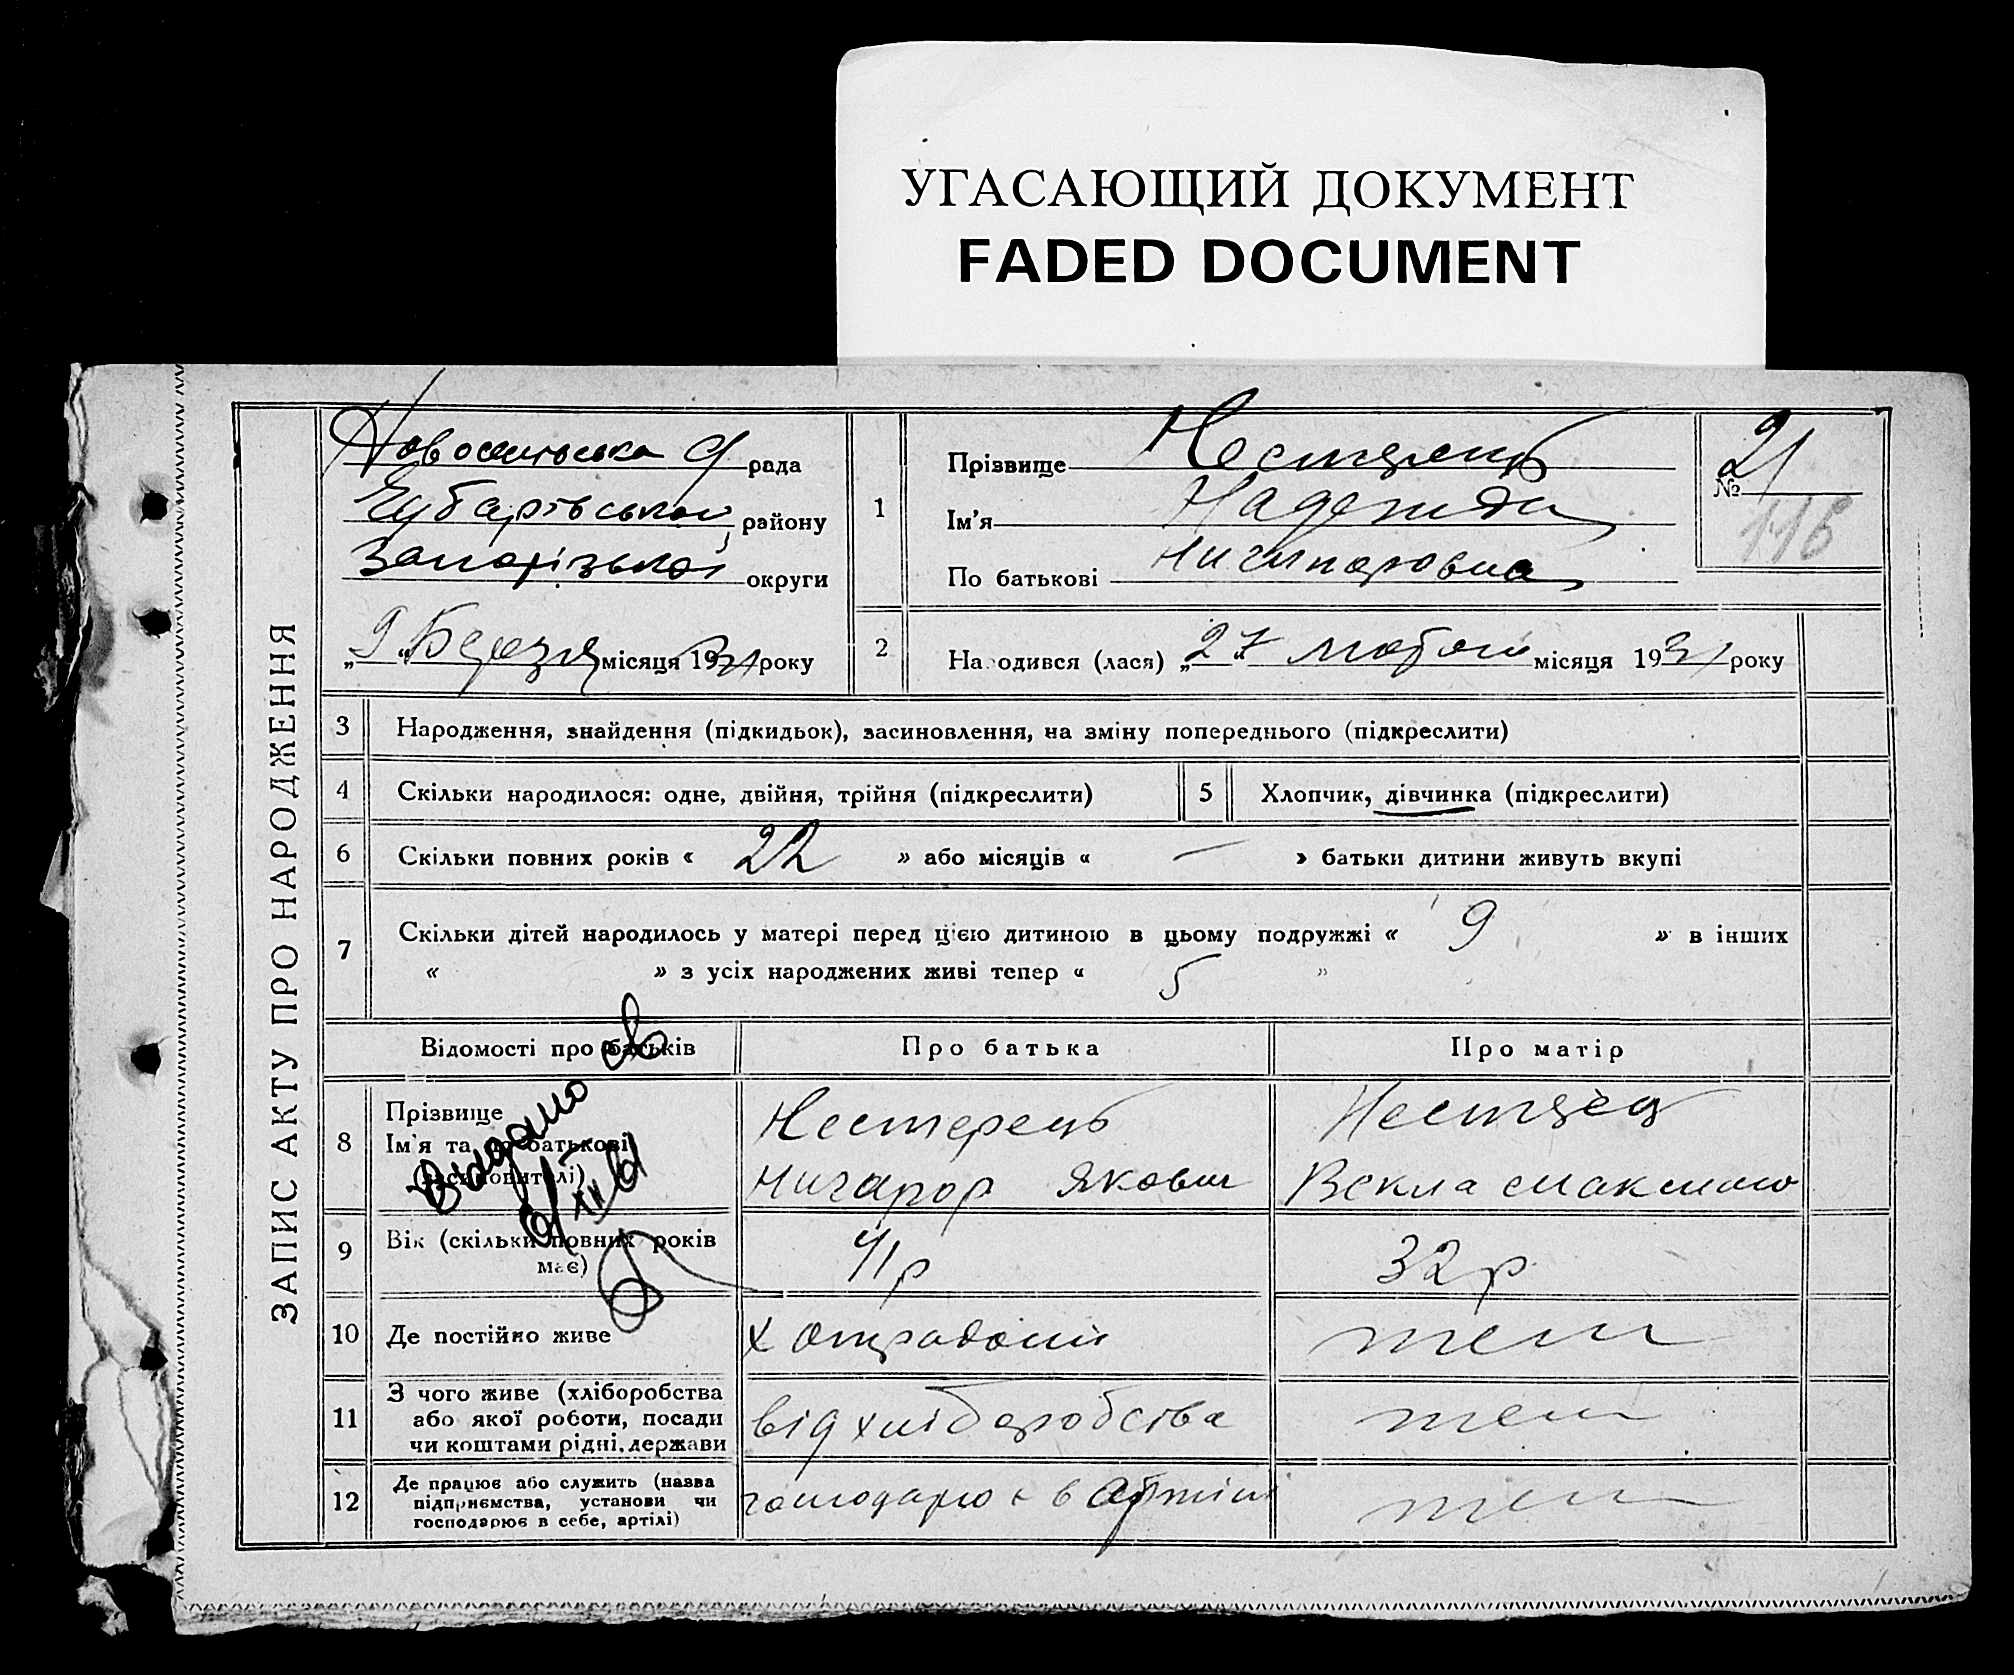 УГАСАЮЩИЙ ДОКУМЕНТ
FADED DOCUMENT
ЗАПИС АКТУ ПРО НАРОДЖЕННЯ
Новосельська рада
Чубарівської району
Запорізької округи
„9“ Березня місяця 1931 року
1
Прізвище
Ім'я Надежда
По батькові Ничипоровна
№ 21
116
2
Народився (лася) „27“ лютого місяця 1931 року
3 Народження, знайдення (підкидьок), засиновлення, на зміну попереднього (підкреслити)
4 Скільки народилося: одне, двійня, трійня (підкреслити)
5 Хлопчик, дівчинка (підкреслити)
6 Скільки повних років « 22 » або місяців « — » батьки дитини живуть вкупі
7 Скільки дітей народилось у матері перед цією дитиною в цьому подружжі « 9 » в інших
« » з усіх народжених живі тепер « 5 »
Відомості про батьків
Про батька
Про матір
8 Прізвище
Ім'я та по батькові
Нестерець
Якович
Векла
Видано св
9 Вік (скільки повних років має)
41р
32р
10 Де постійно живе
х
теж
11 З чого живе (хліборобства
або якої роботи, посади
чи коштами рідні, держави
від хліборобства
теж
12 Де працює або служить (назва
підприємства, установи чи
господарює в себе, артілі)
в артілі
теж